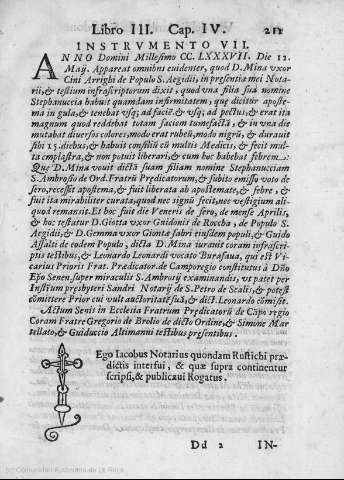 Libro III. Cap. IV. 211
INSTRVMENTO VII.
ANNO Domini Millesimo CC. LXXXVII. Die 12.
Maij. Appareat omnibus euidenter, quod D. Mina vxor
Cini Arrighi de Populo S. Aegidij, in presentia mei Nota-
rij, & testium infrascriptorum dixit, quod vna filia sua nomine
Stephanuccia habuit quamdam infirmitatem, que dicitur aposte-
ma in gula, & tenebat vsq; ad faciē, & vsq; ad pectus, & erat ita
magnum quod reddebat totam faciem tomefactā, & in vna die
mutabat diuersos colores, modo erat rubeū, modo nigrū, & durauit
sibi 15. diebus, & habuit consiliū cū multis Medicis, & fecit mul-
ta emplastra, & non potuit liberari, & cum hoc habebat febrem.
Que D. Mina vouit dictā suam filiam nomine Stephanucciam
S. Ambrosio de Ord. Fratrū Predicatorum, & subito emisso voto de
sero, recessit apostema, & fuit liberata ab apostemate, & febre, &
fuit ita mirabiliter curata, quod nec signū fecit, nec vestigium ali-
quod remansit. Et hoc fuit die Veneris de sero, de mense Aprilis,
& hoc testatur D. Giotta vxor Guidonis de Roccha, de Populo S.
Aegidij, & D. Gemma vxor Gionta fabri eiusdem populi, & Guido
Assalti de eodem Populo, dicta D. Mina iurauit coram infrascri-
ptis testibus, & Leonardo Leonardi vocato Burasaua, qui est Vi-
carius Prioris Frat. Predicator de Camporegio constitutus à Dño
Epo Senen. super miraculis S. Ambrosij examinandis, vt patet per
Instium presbyteri Sandri Notarij de S. Petro de Scalis, & potest
cōmittere Prior cui vult auctoritatē suā, & dict. Leonardo cōmisit.
Actum Senis in Ecclesia Fratrum Predicatorū de Cāpo regio
Coram Fratre Gregorio de Brolio de dicto Ordine, & Simone Mar-
tellato, & Guiduccio Altimanni testibus presentibus.
Ego Iacobus Notarius quondam Rustichi præ-
dictis interfui, & quæ supra continentur
scripsi, & publicaui Rogatus.
Dd 2 IN-
(c) Comunidad Autónoma de La Rioja